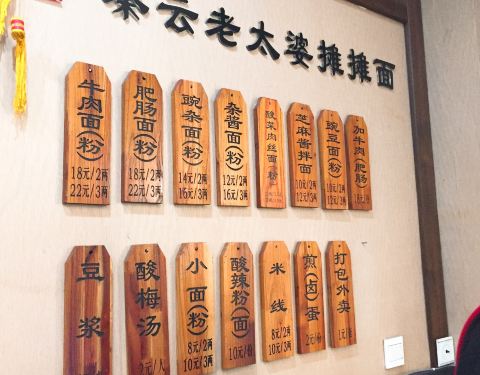 秦云老太婆摊摊面
牛肉面(粉)
18元/2两
22元/3两
肥肠面(粉)
18元/2两
22元/3两
豌杂面(粉)
14元/2两
16元/3两
杂酱面(粉)
12元/2两
16元/3两
酸菜肉丝面(粉)
芝麻酱拌面
10元/2两
12元/3两
豌豆面(粉)
10元/2两
12元/3两
加牛肉(肥肠)
豆浆
酸梅汤
2元/人
小面(粉)
8元/2两
10元/3两
酸辣粉(面)
10元/份
米线
8元/2两
10元/3两
煎(卤)蛋
2元/份
打包外卖